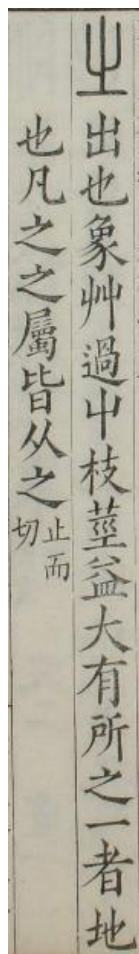 㞢出也象艸過屮枝莖益大有所之一者地
也凡之之屬皆从之止而切